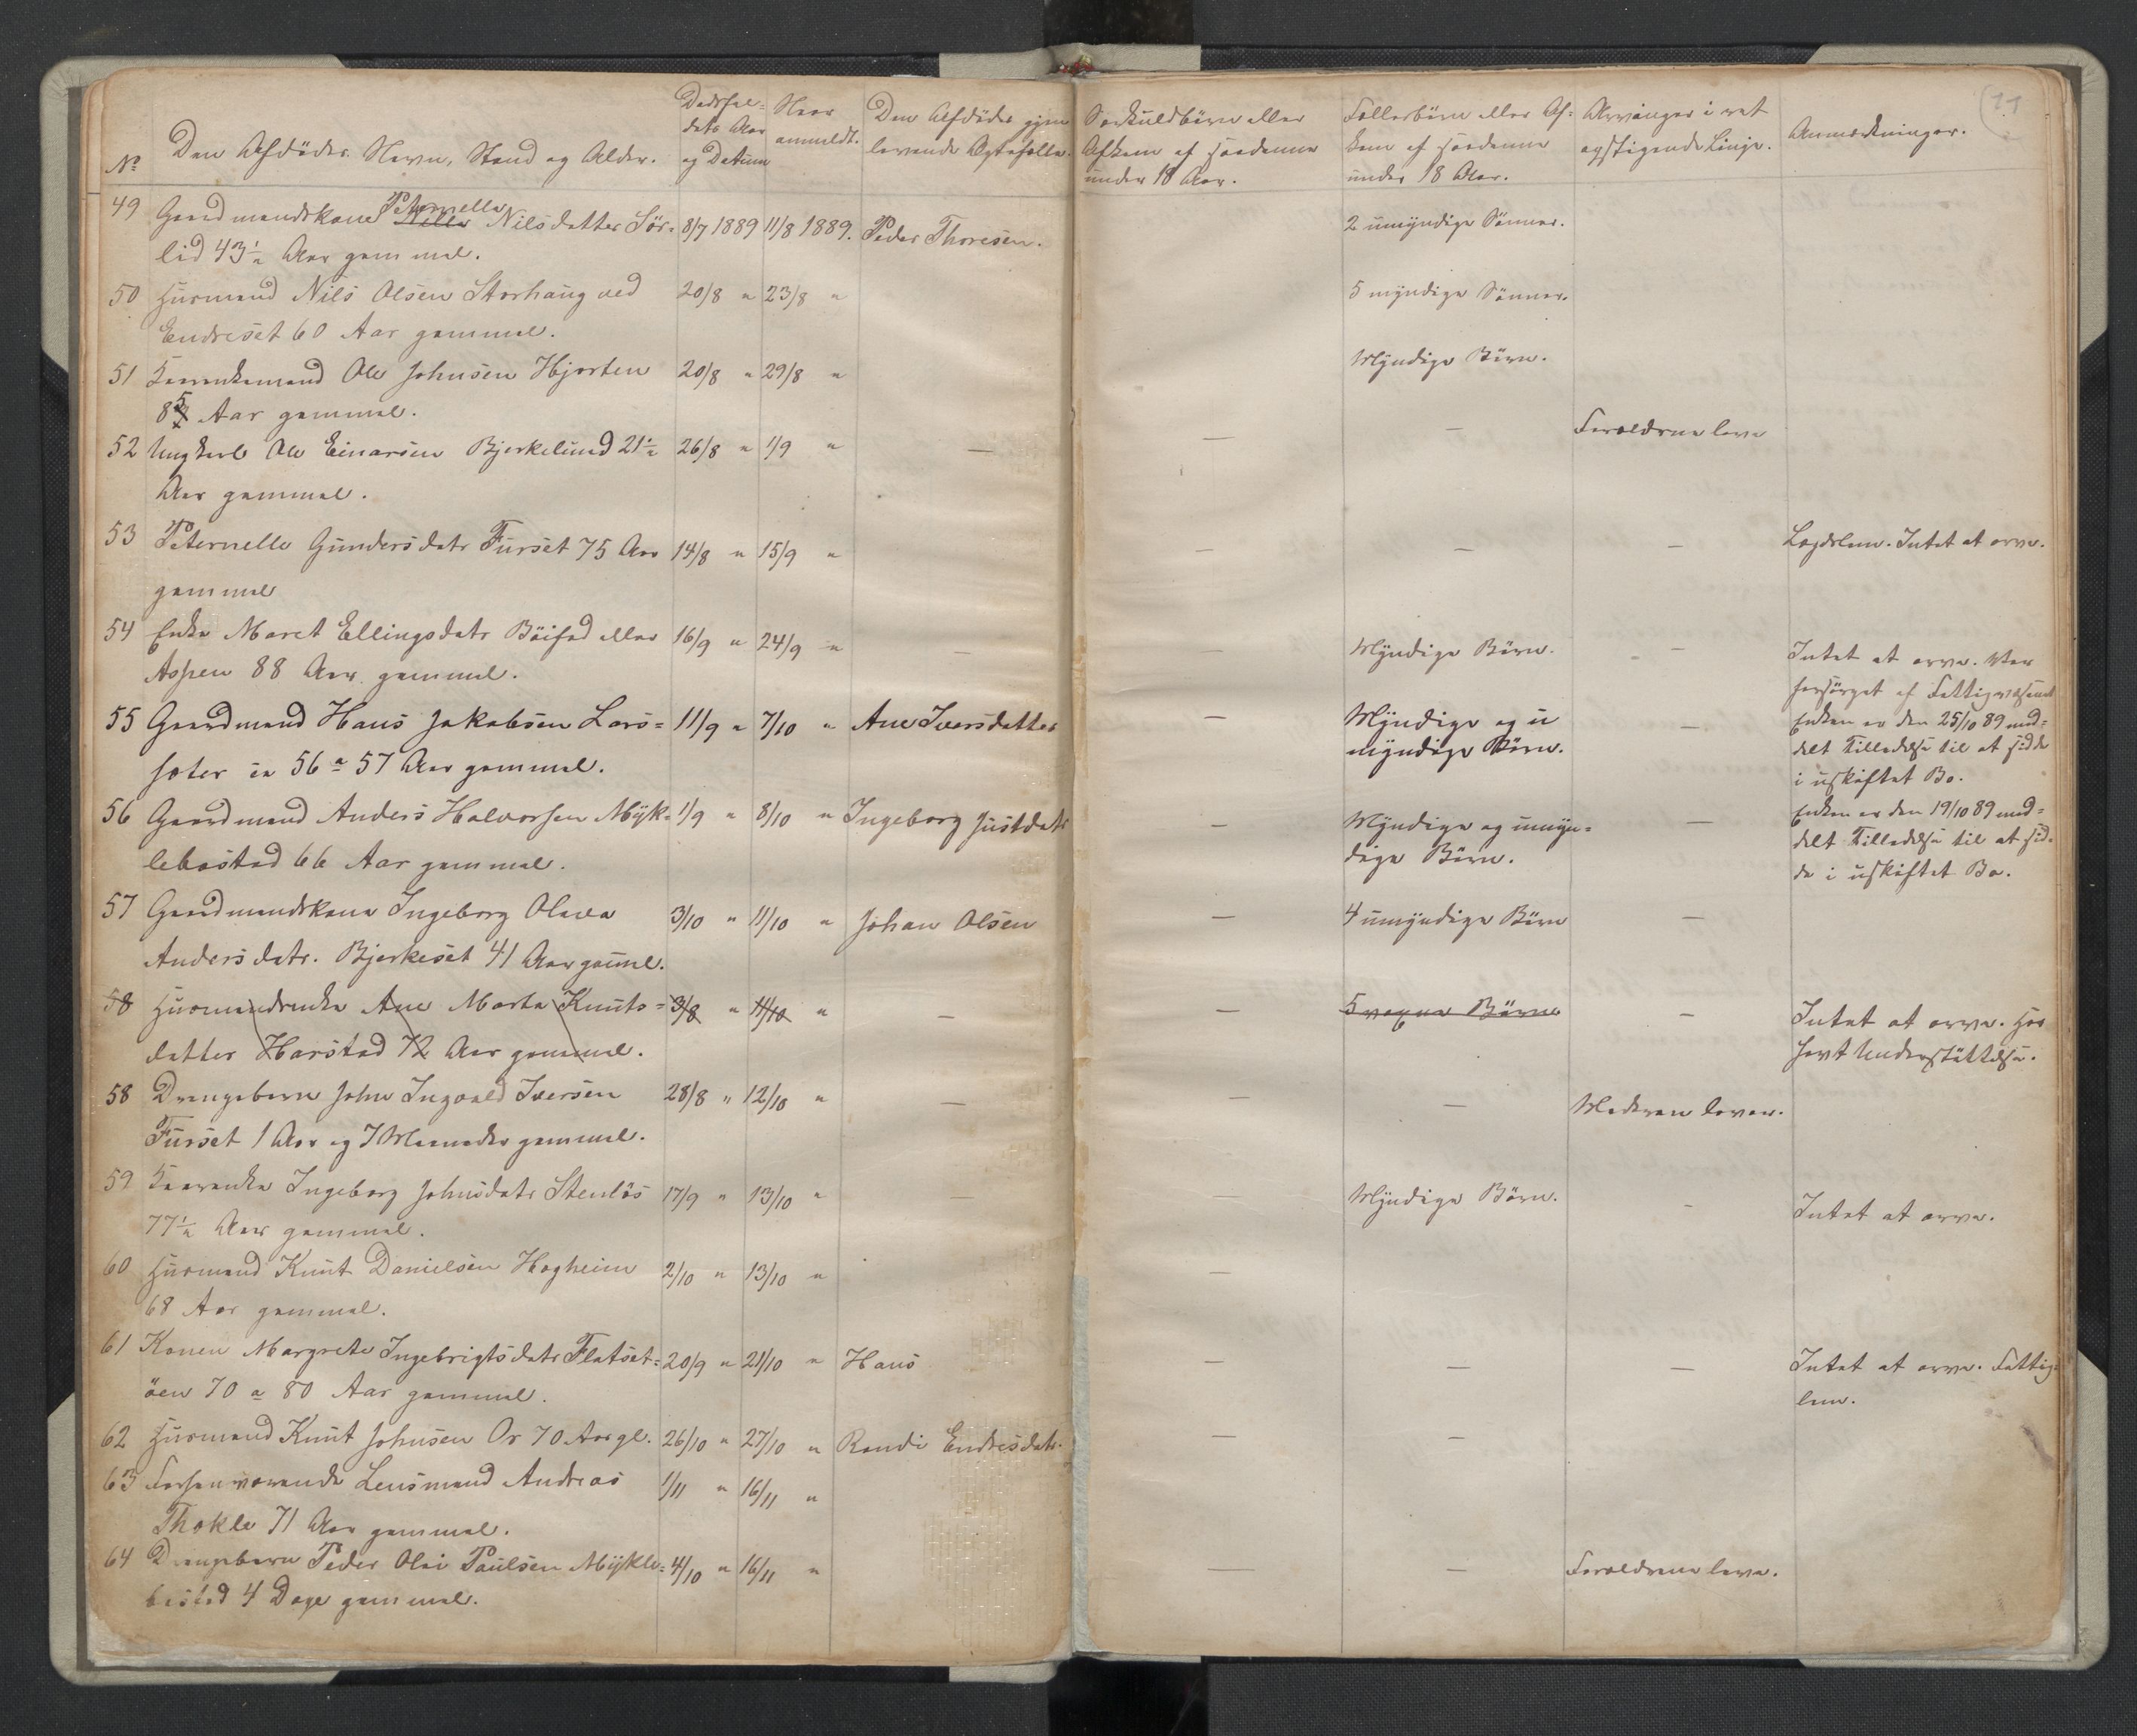 11
No
Den Afdödes Navn, Stand og Alder.
Dødsfal=
dets Aar
og Datum
Naar
anmeldt.
Den Afdødes gjen
levende Ægtefælle.
Særkuldbörn eller
Afkom af saadanne
under 18 Aar.
Fællesbörn eller Af=
kom af saadanne
under 18 Aar.
Arvinger i ret
opstigende Linje.
Anmærkninger.
49 Gaardmandskone Peternelle Nilsdatter Sör= 8/7 1889 11/8 1889. Peder Thoresen. 2 umyndige Sönner.
lid 43½ Aar gammel.
50 Husmand Nils Olsen Storhaug ved 20/8 " 23/8 " 5 myndige Sönner.
Endreset 60 Aar gammel.
51 Kaarenkemand Ole Johnsen Hjorten 20/8 " 29/8 " Myndige Börn.
85 Aar gammel.
52 Ungkarl Ole Einarsen Bjerkelund 21½ 26/8 " 1/9 " — — — Forældrene leve
Aar gammel.
53 Peternelle Gundersdatr Furset 75 Aar 14/8 " 15/9 " — — — Lægdslem. Intet at arve.
gammel
54 Enke Maret Ellingsdatr Böifod eller 16/9 " 24/9 " — — Myndige Börn. — Intet at arve. Var
Aspen 88 Aar gammel. forsörget af Fattigvæsenet
55 Gaardmand Hans Jakobsen Lars= 11/9 " 7/10 " Ane Iversdatter — Myndige og u — Enken er den 25/10 89 med=
sæter ca 56 a 57 Aar gammel. myndige Börn. delt Tilladelse til at sidde
i uskiftet Bo.
56 Gaardmand Anders Halvorsen Myk= 1/9 " 8/10 " Ingeborg Justdatr — Myndige og umyn= — Enken er den 19/10 89 med=
lebostad 66 Aar gammel. dige Börn. delt Tilladelse til at sid=
de i uskiftet Bo.
57 Gaardmandskone Ingeborg Olava 3/10 " 11/10 " Johan Olsen — 4 umyndige Börn —
Andersdatr. Bjerkeset 41 Aar gammel.
58 Husmandsenke Ane Marta Knuts= 3/8 " 11/10 " — — 5 voxne Börn — Intet at arve. Har
datter Harstad 72 Aar gammel. havt Understöttelse.
58 Drengebarn John Ingvald Iversen 28/8 " 12/10 " — — — Moderen lever.
Furset 1 Aar og 7 Maaneder gammel.
59 Kaarenke Ingeborg Johnsdatr Stenlös 17/9 " 13/10 " — — Myndige Börn. - Intet at arve.
77½ Aar gammel.
60 Husmand Knut Danielsen Hagheim 2/10 " 13/10 " —
68 Aar gammel.
61 Konen Margrete Ingebrigtsdatr Flatset= 20/9 " 21/10 " Hans — — — Intet at arve. Fattig=
öen 70 a 80 Aar gammel. lem.
62 Husmand Knut Johnsen Or 70 Aar gl. 26/10 " 27/10 " Randi Endresdatr. — —
63 Forhenværende Lensmand Andreas 1/11 " 16/11 "
Thokle 71 Aar gammel.
64 Drengebarn Peder Olai Paulsen Mykle= 4/10 " 16/11 " — — Forældrene leve.
bostad 4 Dage gammel.